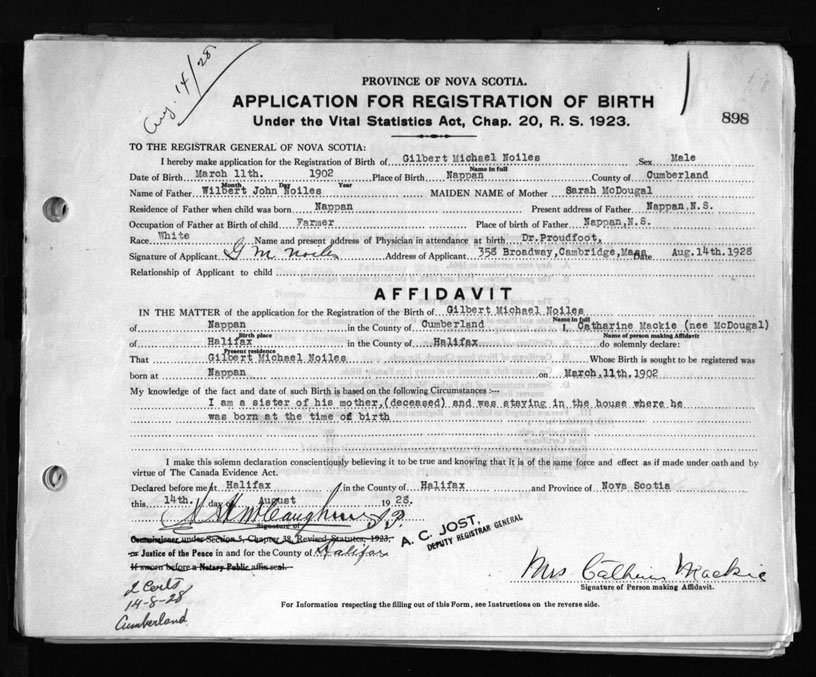 Aug. 14/28
PROVINCE OF NOVA SCOTIA.
APPLICATION FOR REGISTRATION OF BIRTH
Under the Vital Statistics Act, Chap. 20, R. S. 1923.
898
TO THE REGISTRAR GENERAL OF NOVA SCOTIA:
I hereby make application for the Registration of Birth of Gilbert Michael Noiles Sex Male
Name in full
Date of Birth March 11th. 1902 Place of Birth Nappan County of Cumberland
Month Day Year
Name of Father Wilbert John Noiles MAIDEN NAME of Mother Sarah McDougal
Residence of Father when child was born Nappan Present address of Father Nappan,N.S.
Occupation of Father at Birth of child Farmer Place of birth of Father Nappan,N.S.
Race White Name and present address of Physician in attendance at birth Dr.Proudfoot,
Signature of Applicant G M Noiles Address of Applicant 358 Broadway,Cambridge,Mass Date Aug.14th.1928
Relationship of Applicant to child
AFFIDAVIT
IN THE MATTER of the application for the Registration of the Birth of Gilbert Michael Noiles
Name in full
of Nappan in the County of Cumberland I, Catharine Mackie (nee McDougal)
Birth place Name of person making Affidavit
of Halifax in the County of Halifax do solemnly declare:
Present residence
That Gilbert Michael Noiles Whose Birth is sought to be registered was
born at Nappan on March,11th,1902
My knowledge of the fact and date of such Birth is based on the following Circumstances :—
I am a sister of his mother,(deceased) and was staying in the house where he
was born at the time of birth
I make this solemn declaration conscientiously believing it to be true and knowing that it is of the same force and effect as if made under oath and by
virtue of The Canada Evidence Act.
Declared before me At Halifax in the County of Halifax and Province of Nova Scotia
this 14th. day August 1928.
J.P.
Signature of
Commissioner under Section 5, Chapter 38, Revised Statutes, 1923,
or Justice of the Peace in and for the County of Halifax
If sworn before a Notary Public affix seal.
A. C. JOST,
DEPUTY REGISTRAR GENERAL
Mrs Mackie
Signature of Person making Affidavit.
2 Certs
14-8-28
Cumberland
For Information respecting the filling out of this Form, see Instructions on the reverse side.